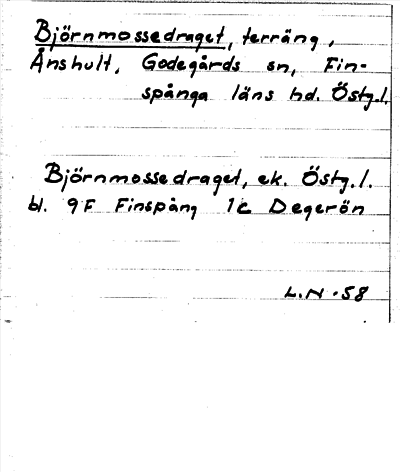 Björnmossedraget, terräng,
Ånshult, Godegårds sn, Fin-
spånga läns hd. Östg.l.
Björnmossedraget, ek. Östg.l.
bl. 9F Finspång 1c Degerön
L.N. 58